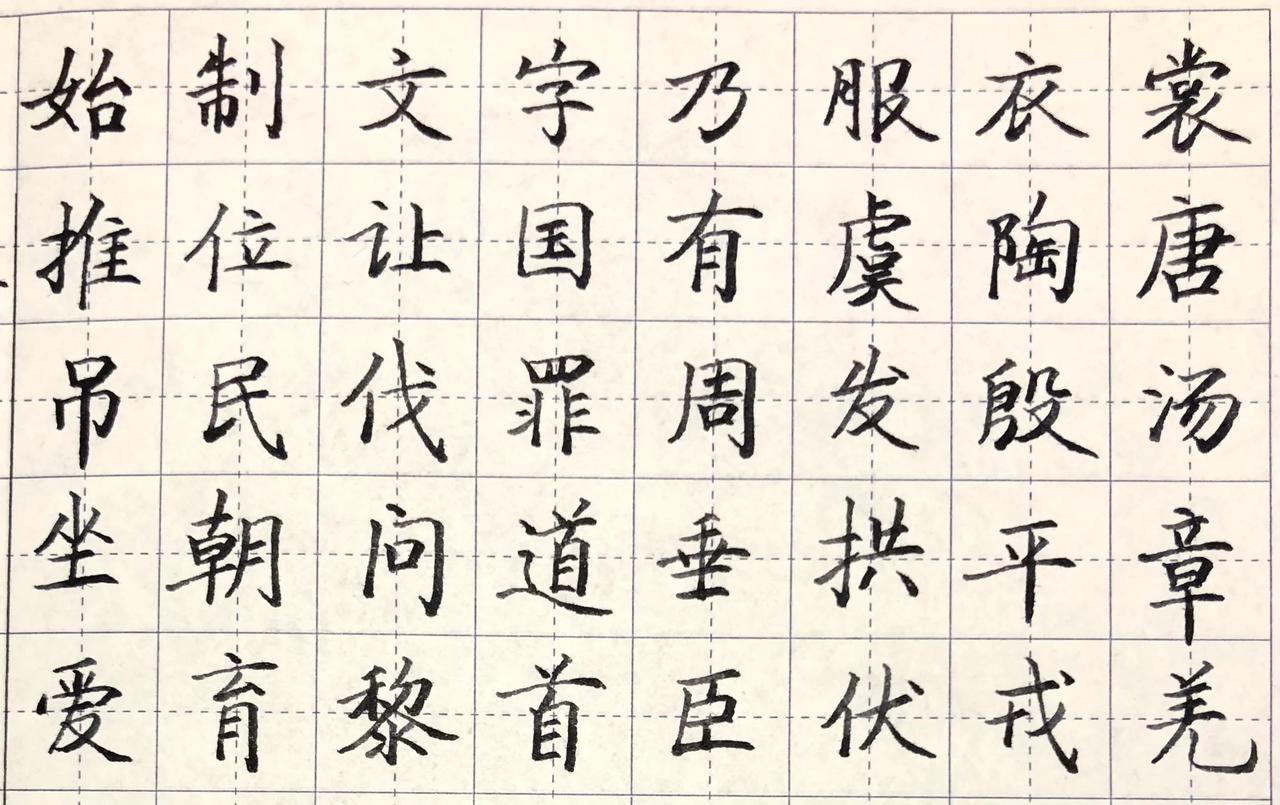 始制文字乃服衣裳
推位让国有虞陶唐
吊民伐罪周发殷汤
坐朝问道垂拱平章
爱育黎首臣伏戎羌